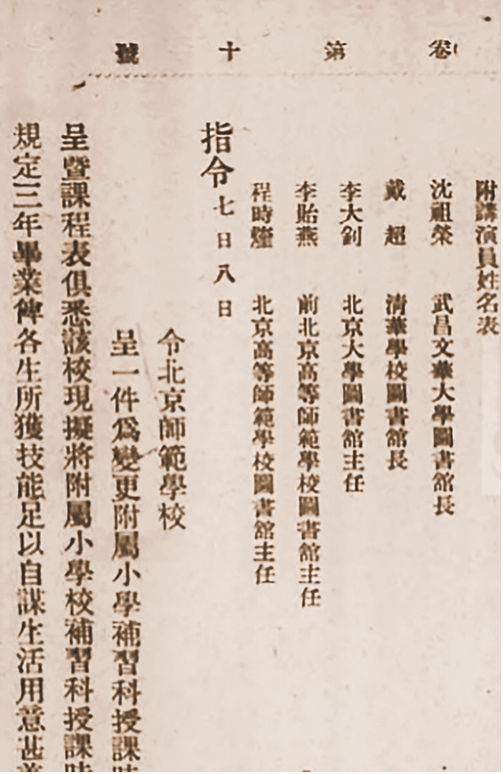 卷 第 十 號
附講演員姓名表
沈祖榮 武昌文華大學圖書館長
戴超 清華學校圖書館長
李大釗 北京大學圖書館主任
李貽燕 前北京高等師範學校圖書館主任
程時煃 北京高等師範學校圖書館主任
指令 七日八日
令北京師範學校
呈一件爲變更附屬小學補習科授課時
呈暨課程表俱悉該校現擬將附屬小學校補習科授課時
規定三年畢業俾各生所獲技能足以自謀生活用意甚善